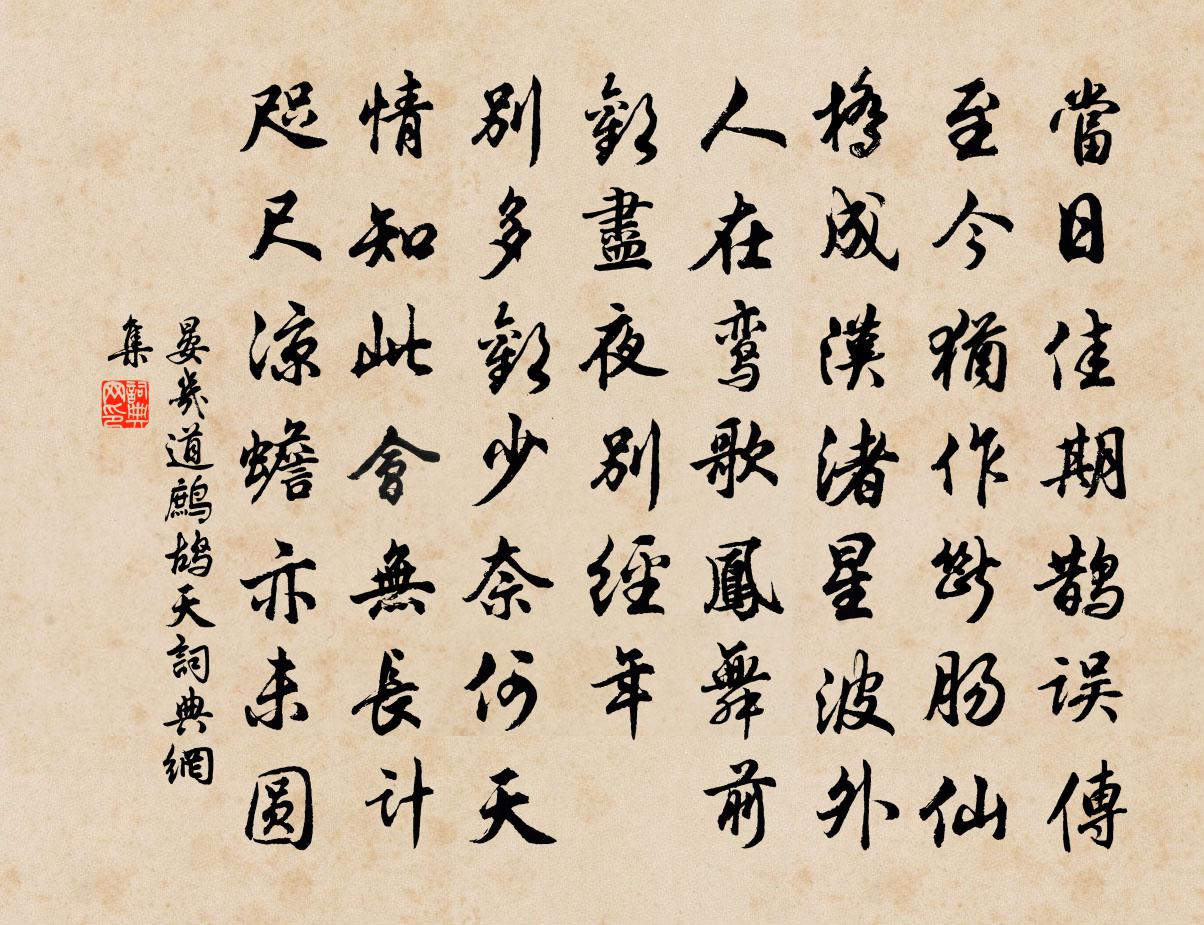 當日佳期鵲误傳
至今猶作斷肠仙
橋成漢渚星波外
人在鸾歌鳳舞前
歡盡夜别經年
别多歡少奈何天
情知此會無長計
咫尺涼蟾亦未圆
晏幾道鷓鸪天詞典網
集
詞典
网印